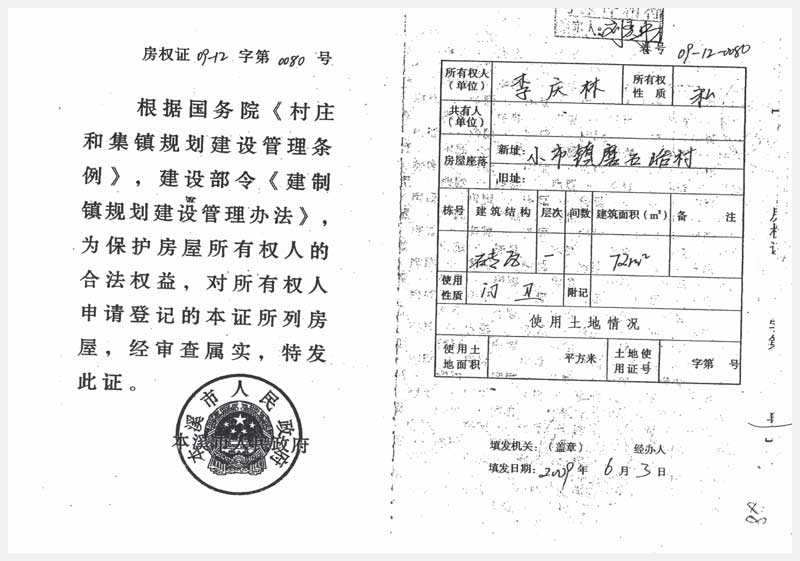 房权证 09-12 字第 0080 号
根据国务院《村庄
和集镇规划建设管理条
例》，建设部令《建制
镇规划建设管理办法》，
为保护房屋所有权人的
合法权益，对所有权人
申请登记的本证所列房
屋，经审查属实，特发
此证。
本溪市人民政府
本溪市人民政府
09-12-0080
所有权人（单位） 李庆林 所有权性质 私
共有人（单位）
房屋座落 新址: 小市镇磨石峪村
旧址:
栋号 建筑结构 层次 间数 建筑面积（m²） 备 注
砖瓦 一 72m²
使用性质 门卫 附记
使用土地情况
使用土地面积 平方米 土地使用证号 字第 号
填发机关:（盖章） 经办人
填发日期: 2009 年 6 月 3 日